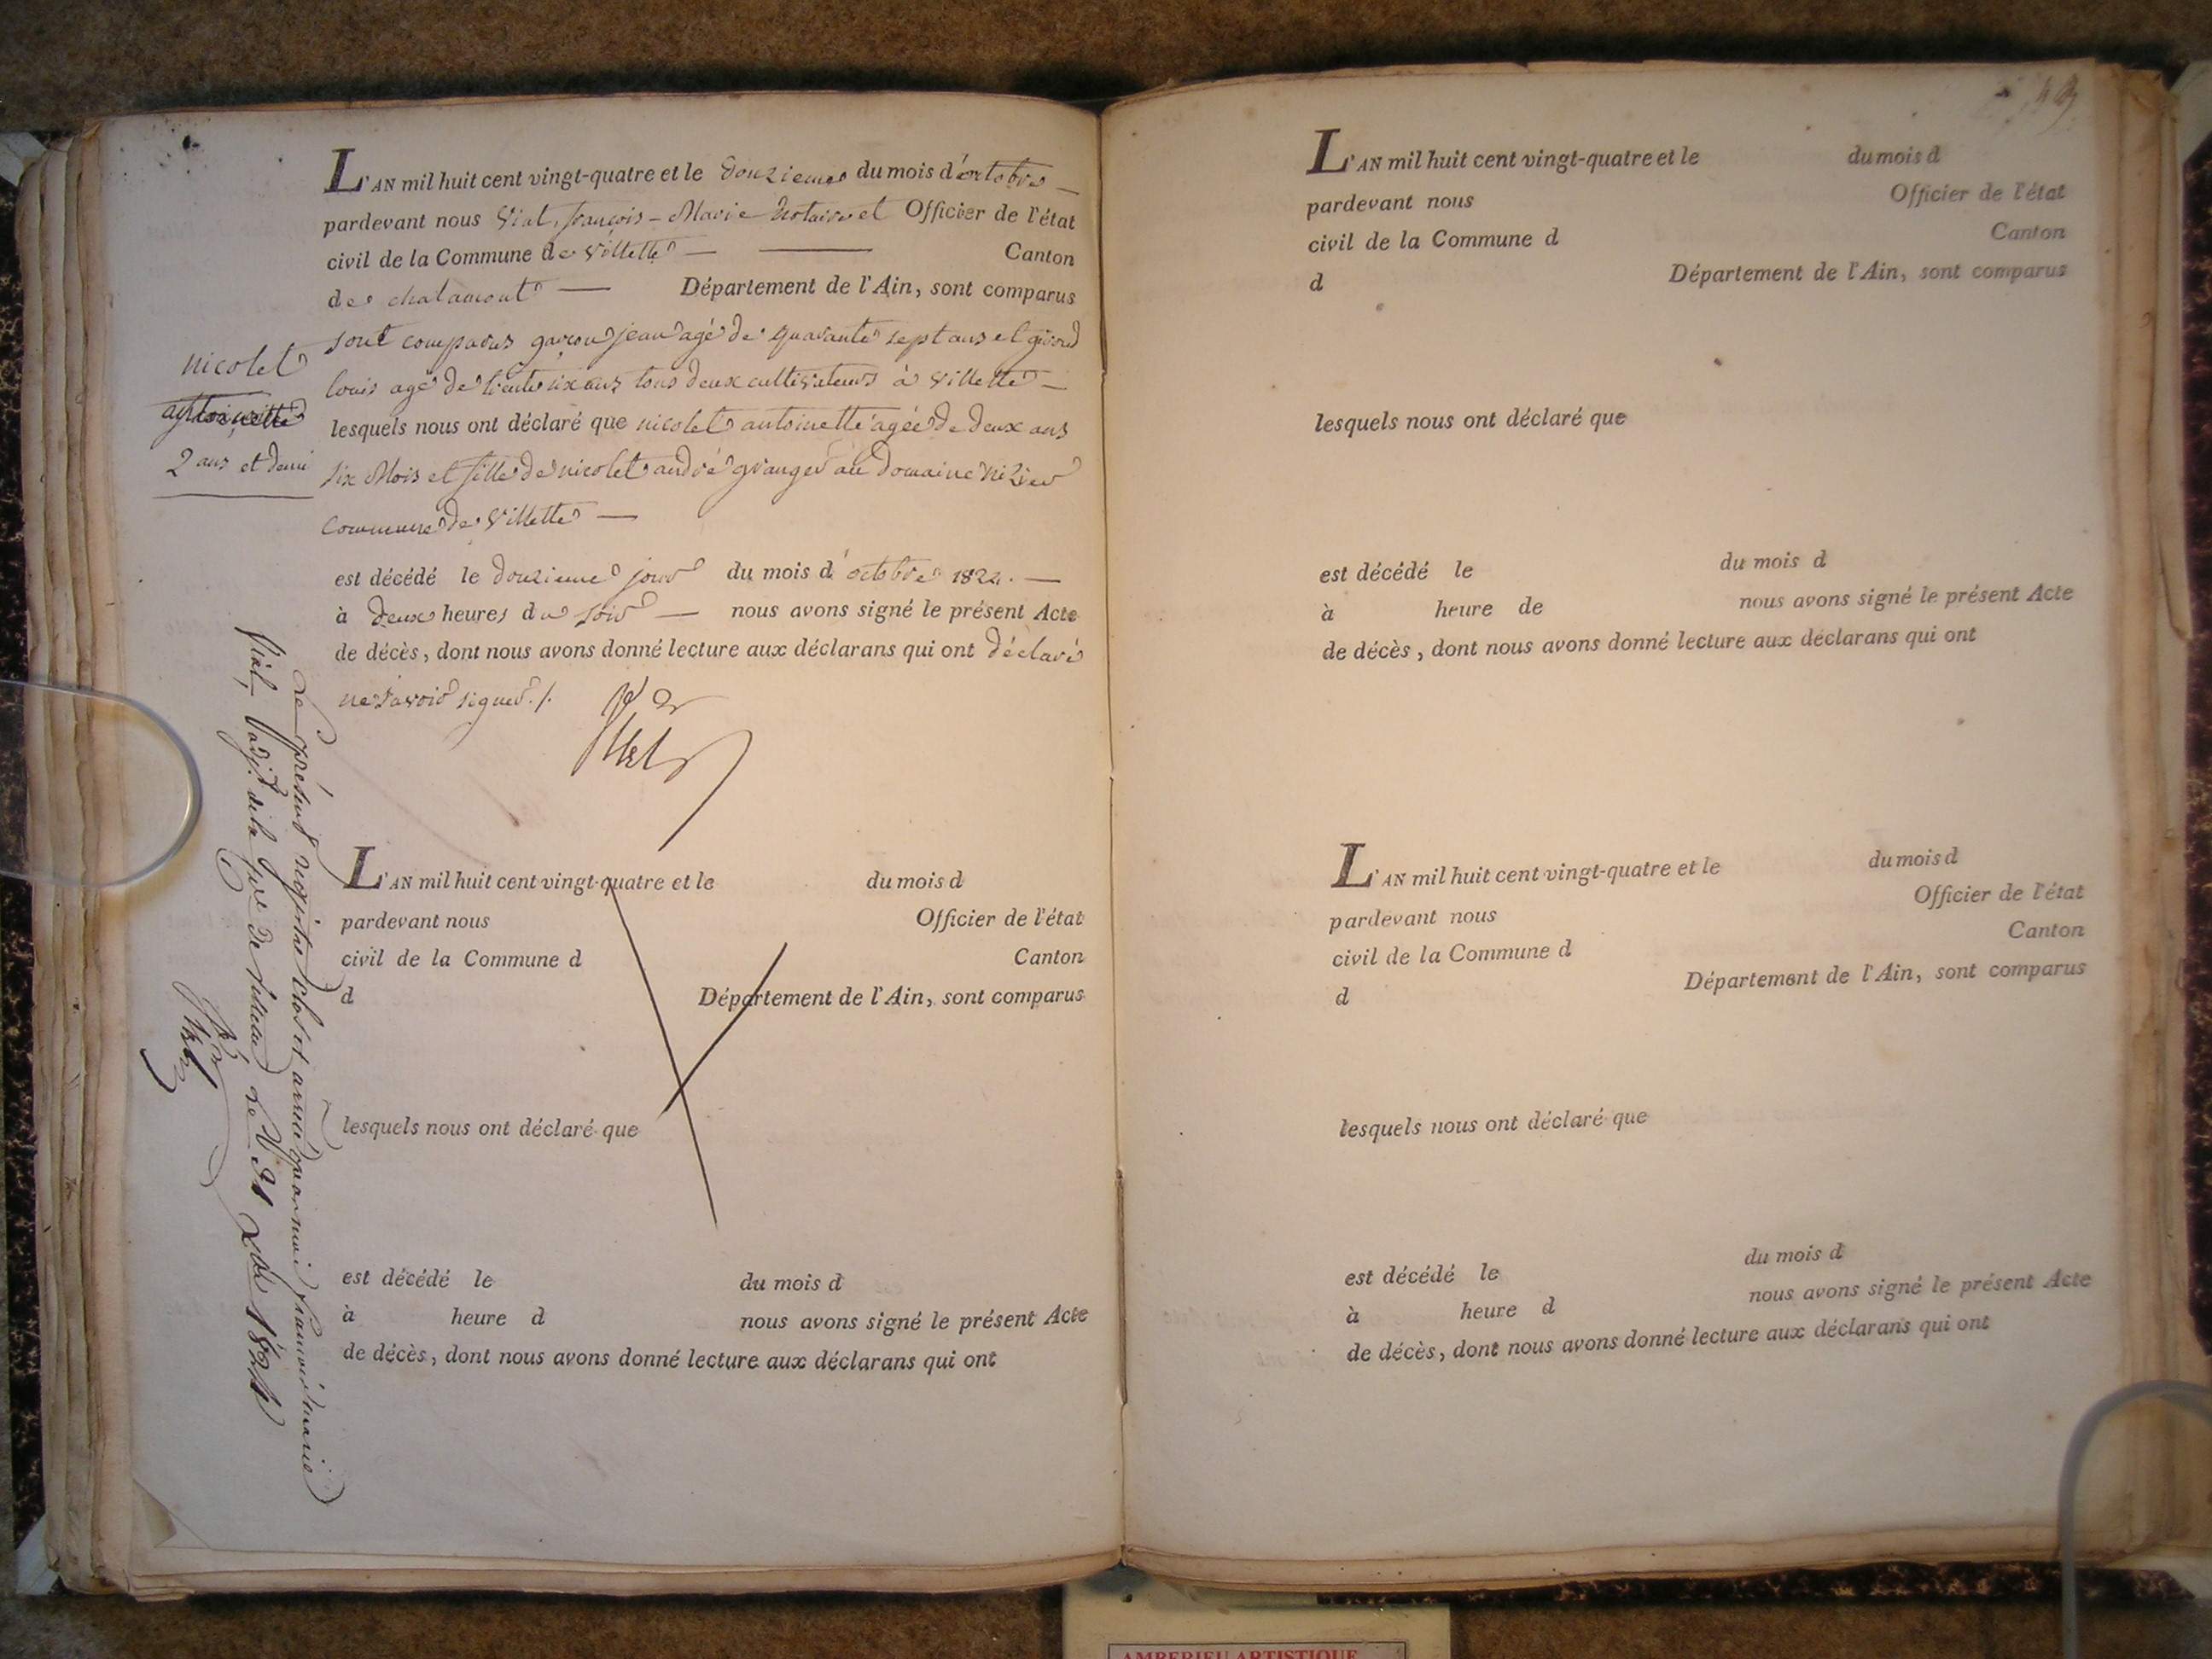 L'AN mil huit cent vingt-quatre et le douzieme du mois d'octobre
pardevant nous Vial, françois-Marie Notaire et Officier de l'état
civil de la Commune de Villette Canton
de chalamont Département de l'Ain, sont comparus
sont comparus garçon jean agé de quarante sept ans et girod
louis agé de trente six ans tous deux cultivateurs à Villette
lesquels nous ont déclaré que nicolet antoinette agée de deux ans
six Mois et fille de nicolet andré granger au domaine nizier
commune de Villette
est décédé le douzieme jour du mois d'octobre 1824.
à deux heures du soir nous avons signé le présent Acte
de décès, dont nous avons donné lecture aux déclarans qui ont déclaré
ne Savoir signer ./.
Vial
nicolet
antoinette
2 ans et demi
Le présent registre clos et arreté par moi françois marie
Vial, adjt. de la Cne de Villette Le 31 Xbre 1824
L'AN mil huit cent vingt-quatre et le du mois d
pardevant nous Officier de l'état
civil de la Commune d Canton
d Département de l'Ain, sont comparus
lesquels nous ont déclaré que
est décédé le du mois d
à heure d nous avons signé le présent Acte
de décès, dont nous avons donné lecture aux déclarans qui ont
L'AN mil huit cent vingt-quatre et le du mois d
pardevant nous Officier de l'état
civil de la Commune d Canton
d Département de l'Ain, sont comparus
lesquels nous ont déclaré que
est décédé le du mois d
à heure de nous avons signé le présent Acte
de décès, dont nous avons donné lecture aux déclarans qui ont
L'AN mil huit cent vingt-quatre et le du mois d
pardevant nous Officier de l'état
civil de la Commune d Canton
d Département de l'Ain, sont comparus
lesquels nous ont déclaré que
est décédé le du mois d
à heure d nous avons signé le présent Acte
de décès, dont nous avons donné lecture aux déclarans qui ont
AMBERIEU ARTISTIQUE